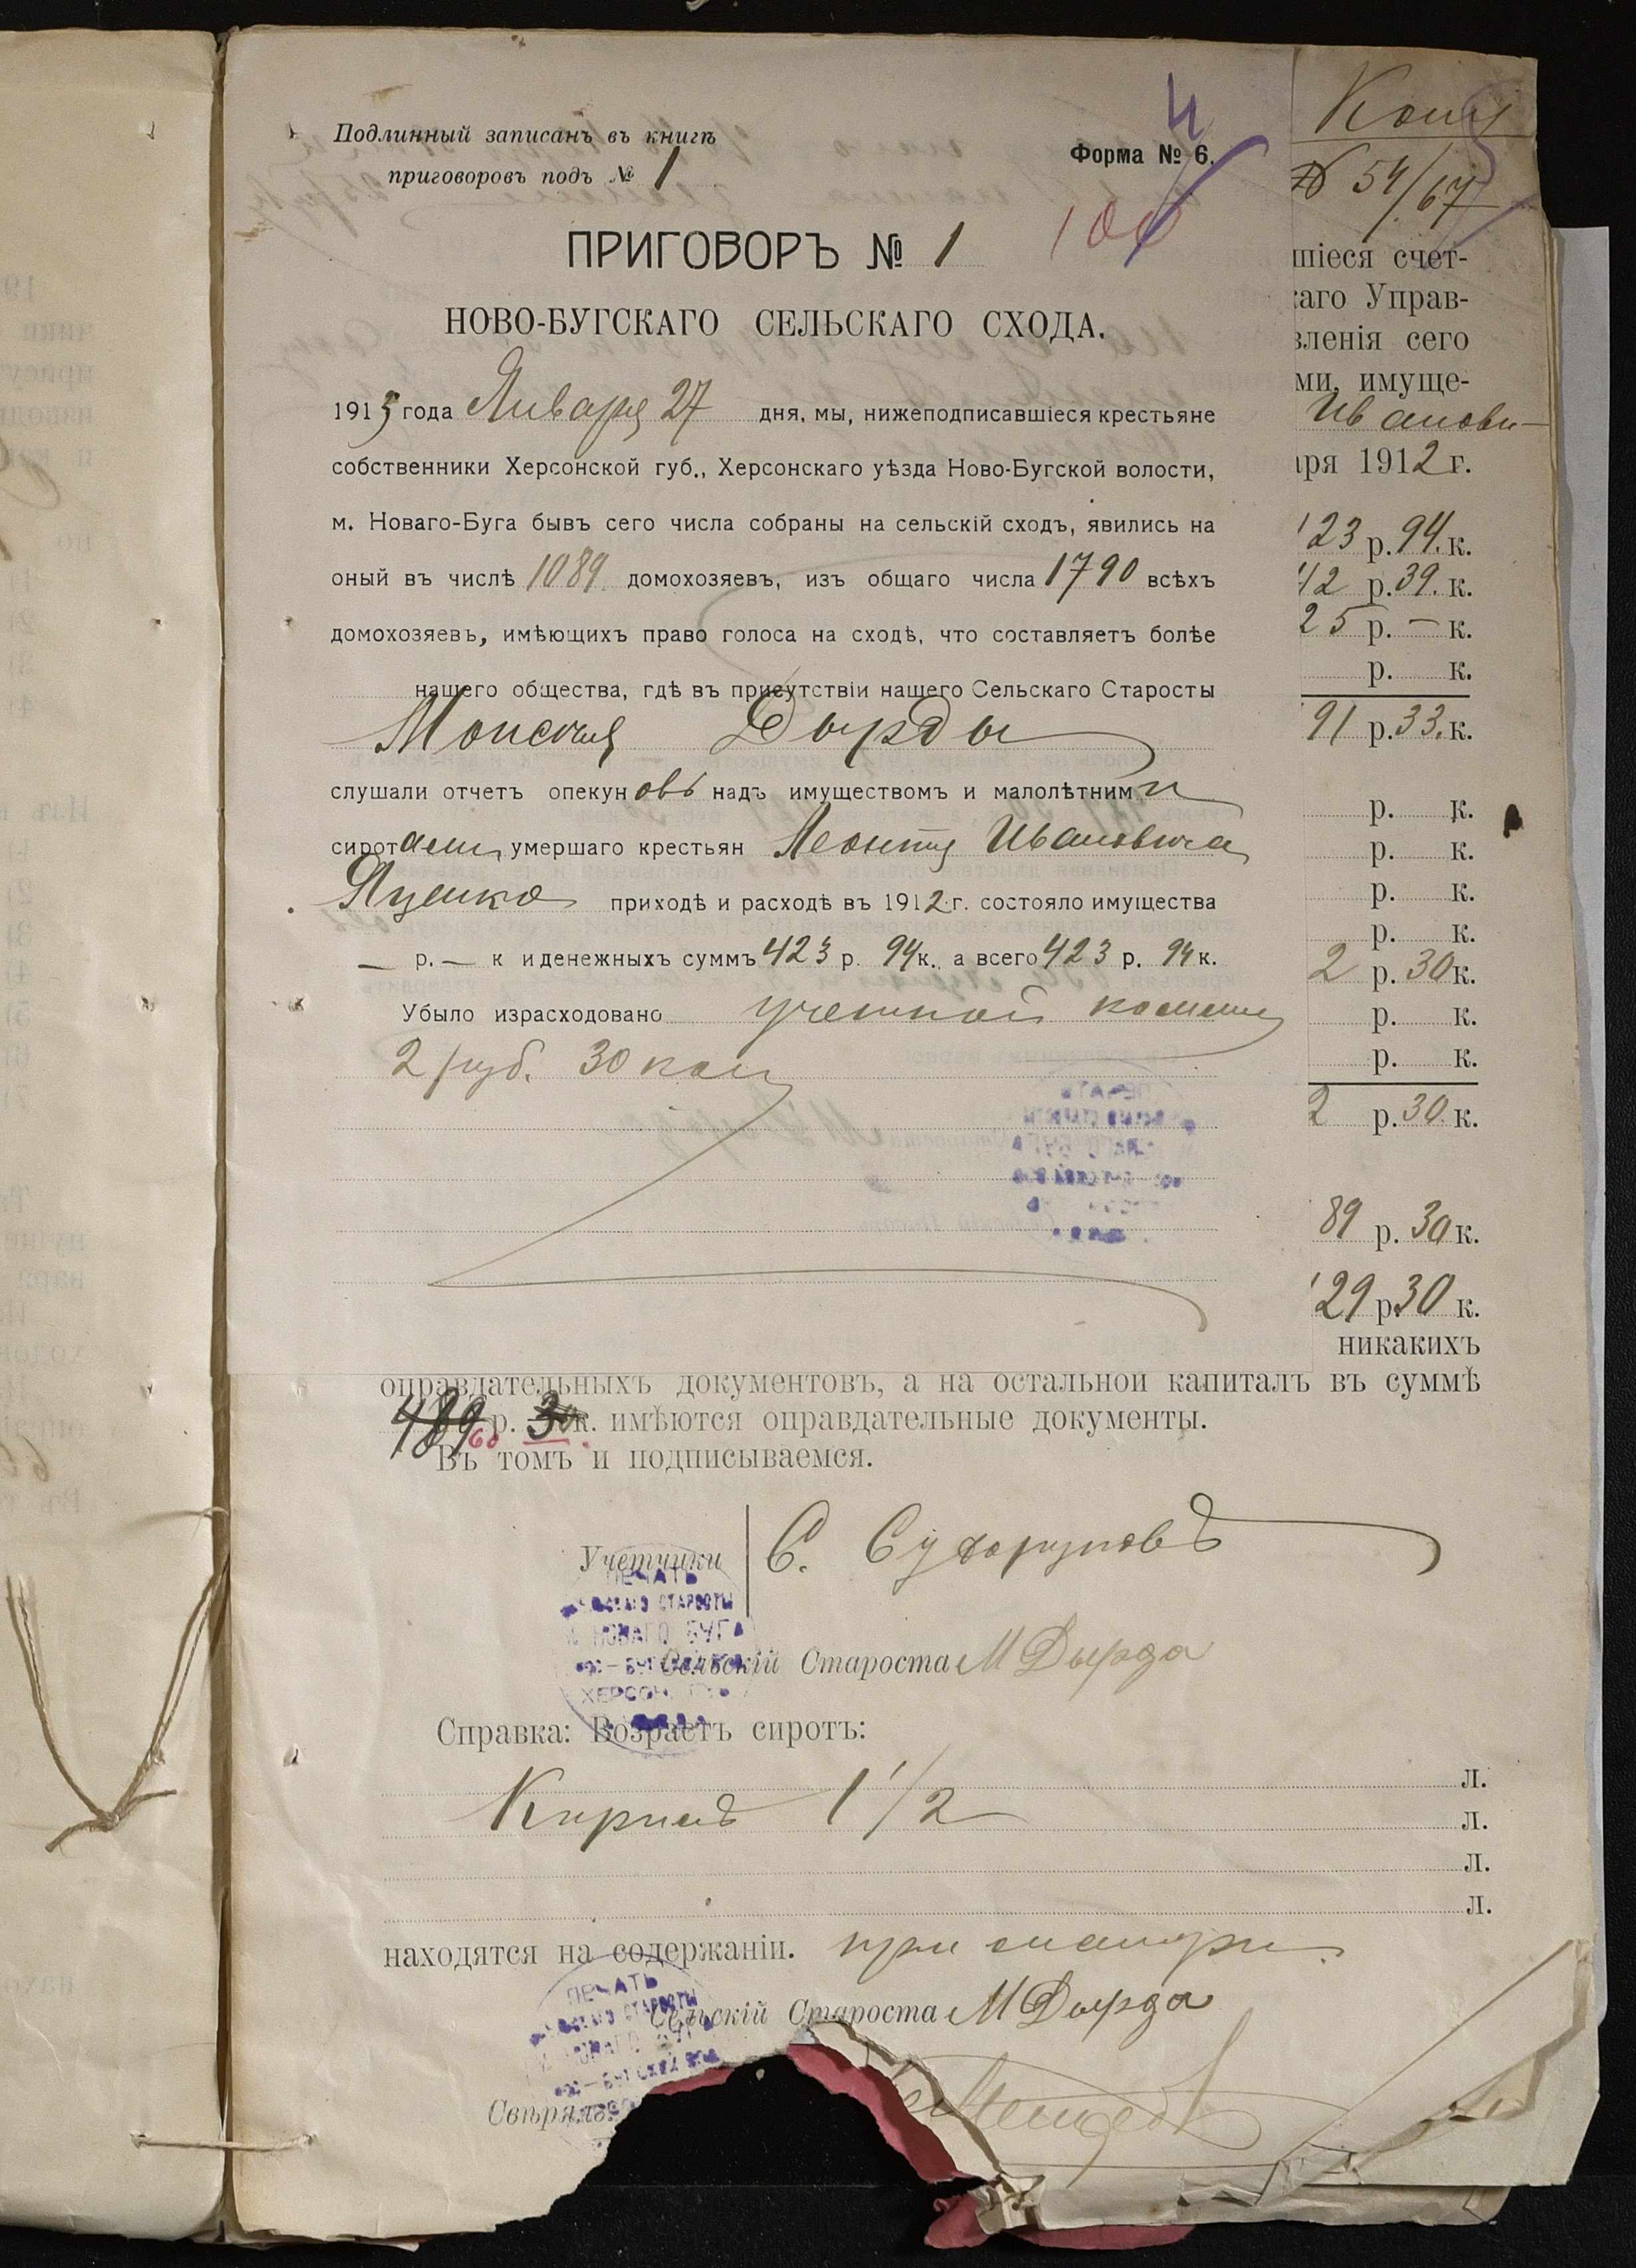 Подлинный записанъ въ книгѣ
приговоровъ подъ № 1
Форма № 6.
4
100
ПРИГОВОРЪ № 1
НОВО-БУГСКАГО СЕЛЬСКАГО СХОДА.
1913 года Января 27 дня, мы, нижеподписавшіеся крестьяне
собственники Херсонской губ., Херсонскаго уѣзда Ново-Бугской волости,
м. Новаго-Буга бывъ сего числа собраны на сельскій сходъ, явились на
оный въ числѣ 1089 домохозяевъ, изъ общаго числа 1790 всѣхъ
домохозяевъ, имѣющихъ право голоса на сходѣ, что составляетъ болѣе
нашего общества, гдѣ въ присутствіи нашего Сельскаго Старосты
Моисея Дырды
слушали отчетъ опекуновъ надъ имуществомъ и малолѣтними
сиротами умершаго крестьян Леонтія Ивановича
Яценко приходѣ и расходѣ въ 1912 г. состояло имущества
— р. — к и денежныхъ суммъ 423 р. 94 к., а всего 423 р. 94 к.
Убыло израсходовано учетной
2 руб. 30 коп
Копія
№ 54/67
шіеся счет-
каго Управ-
вленія сего
ми, имуще-
Иванови-
аря 1912 г.
23 р. 94. к.
42 р. 39. к.
25 р. — к.
р. к.
91 р. 33. к.
р. к.
р. к.
р. к.
р. к.
2 р. 30 к.
р. к.
р. к.
2 р. 30. к.
89 р. 30 к.
29 р 30 к.
никакихъ
оправдательныхъ документовъ, а на остальной капиталъ въ суммѣ
489 р. 30 к. имѣются оправдательные документы.
60
Въ томъ и подписываемся.
Учетчики С. Сухоруковъ
ПЕЧАТЬ
СТАРОСТЫ
НОВАГО БУГА
ХЕРСОН.
Сельскій Староста МДырда
Справка: Возрастъ сиротъ:
л.
Кирилъ 1 1/2 л.
л.
л.
находятся на содержаніи. при матери
ПЕЧАТЬ
СТАРОСТЫ
Сельскій Староста МДырда
Свѣрялъ: